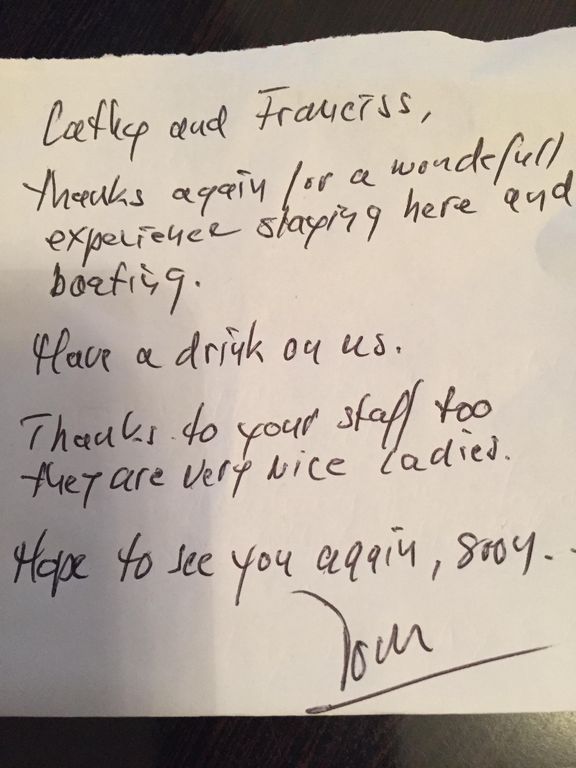 Cathy and Franciss,
Thanks again for a wondefull
experience staying here and
boating.
Have a drink on us.
Thanks to your staff too
they are very nice ladies.
Hope to see you again, soon.
Tom